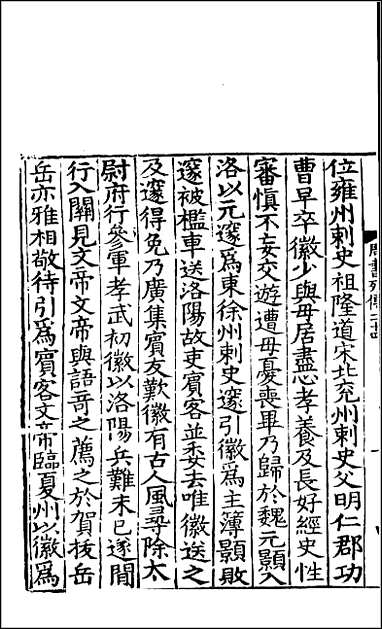 位雍州刺史祖隆道宋北兗州刺史父明仁郡功
曹早卒徽少與母居盡心孝養及長好經史性
審慎不妄交遊遭母憂喪畢乃歸於魏元顥入
洛以元邃為東徐州刺史邃引徽為主簿顥敗
邃被檻車送洛陽故吏賓客並委去唯徽送之
及邃得免乃廣集賓友歎徽有古人風尋除太
尉府行參軍孝武初徽以洛陽兵難未已遂間
行入關見文帝文帝與語奇之薦之於賀拔岳
岳亦雅相敬待引為賓客文帝臨夏州以徽為
周書列傳二十四